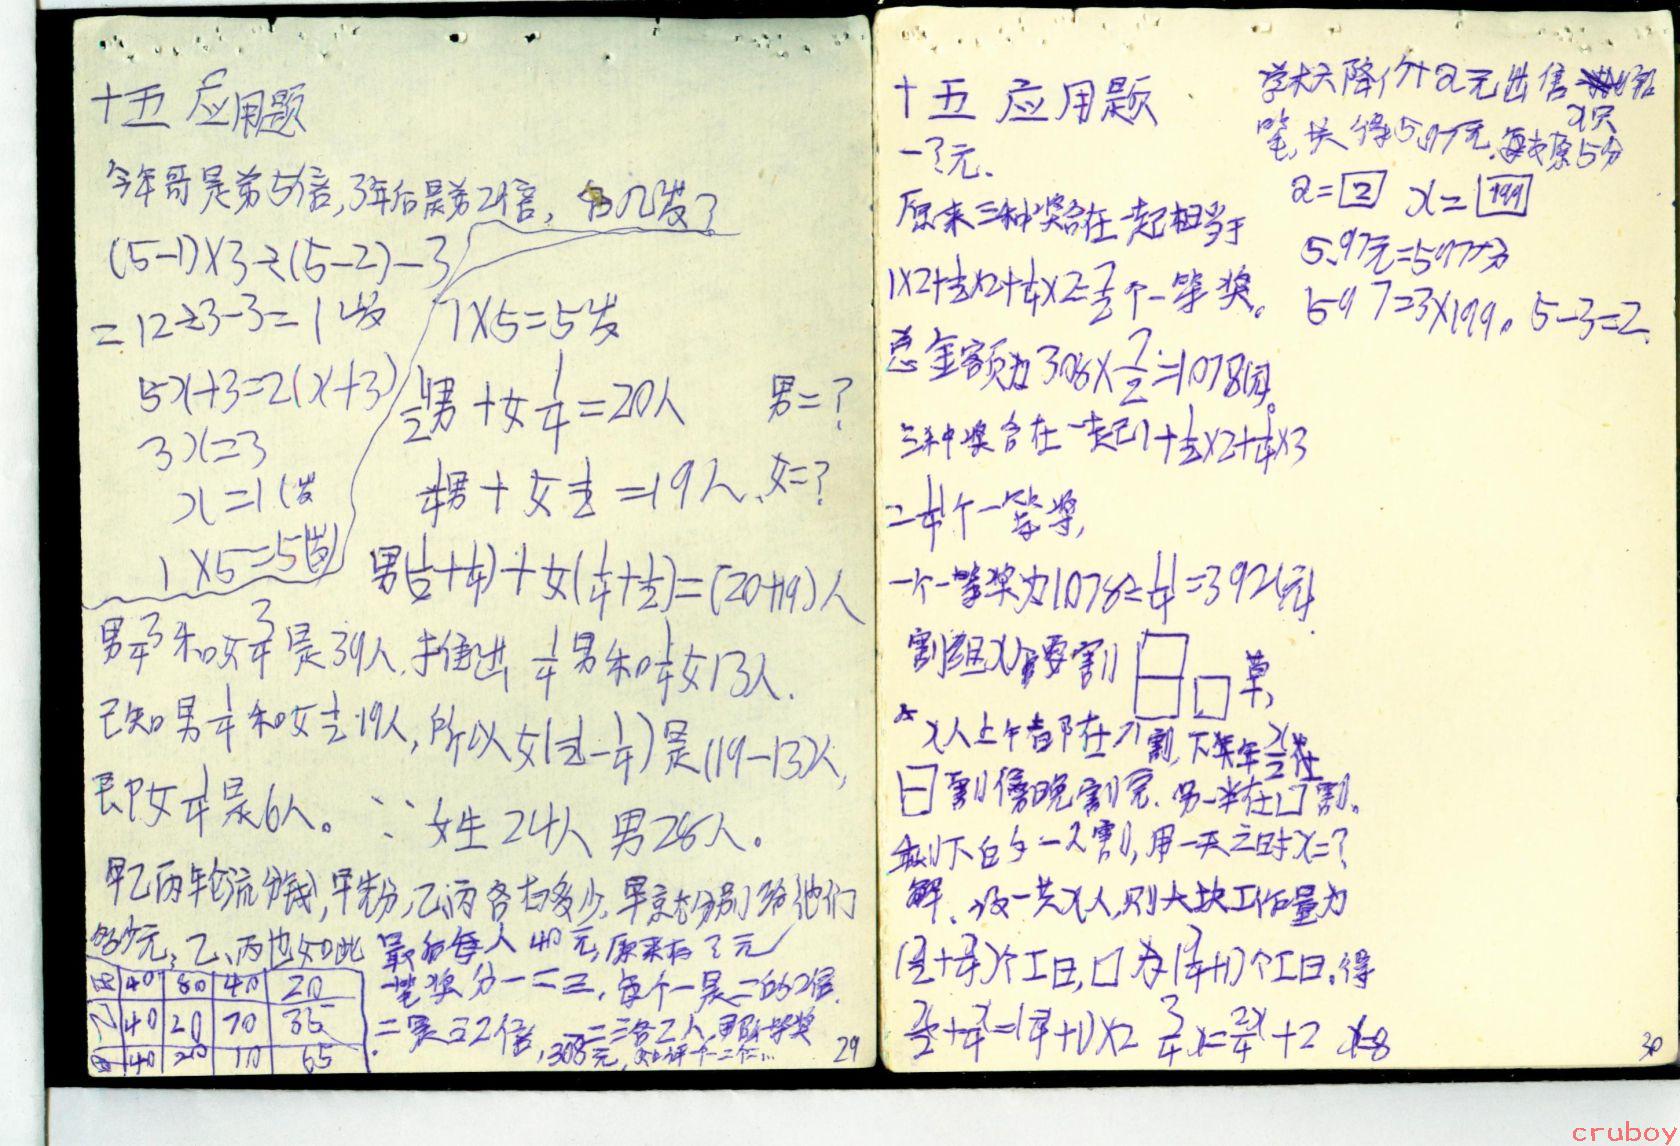 十五 应用题
今年哥是弟5倍,3年后是弟2倍, 各几岁?
(5-1)×3÷(5-2)-3
=12÷3-3=1岁 1×5=5岁
5x+3=2(x+3)
3x=3
x=1(岁)
1×5=5(岁)
1/2男+女1/4=20人 男=?
1/4男+女1/2=19人. 女=?
男(1/2+1/4)+女(1/4+1/2)=(20+19)人
男3/4和女3/4是39人. 推出 1/4男和1/4女13人.
已知男1/4和女1/2 19人, 所以女(1/2-1/4)是(19-13)人,
即女1/4是6人。∴ 女生24人 男28人。
甲乙丙轮流分钱,甲先分,乙丙各有多少,甲就分别给他们
多少元, 乙、丙也如此 最后每人40元,原来有?元
甲 40 80 40 20
乙 40 20 70 35
丙 40 20 10 65
一笔奖分一二三, 每个一是二的2倍.
二是三2倍, 308元,
29
十五 应用题
一?元.
原来三种奖合在一起相当于
1×2+1/2×2+1/4×2=7/2个一等奖。
总金额为308×7/2=1078(元)。
三种奖合在一起1+1/2×2+1/4×3
=11/4个一等奖,
一个一等奖为1078÷11/4=392(元)
割组x人要割 草,
x人上午都在大割,下午x/2在
割傍晚割完. 另一半在口割。
剩下的一人割,用一天之时x=?
解、设一共x人,则大块工作量为
(x/2+x/4)个工日,口为(x/4+1)个工日。得
x/2+x/4=(x/4+1)×2 3/4x=2x/4+2 x=8
30
降价a元出售 x只
笔, 共得5.97元, 每支原5分
a=2 x=199
5.97元=597分
597=3×199。5-3=2.
cruboy